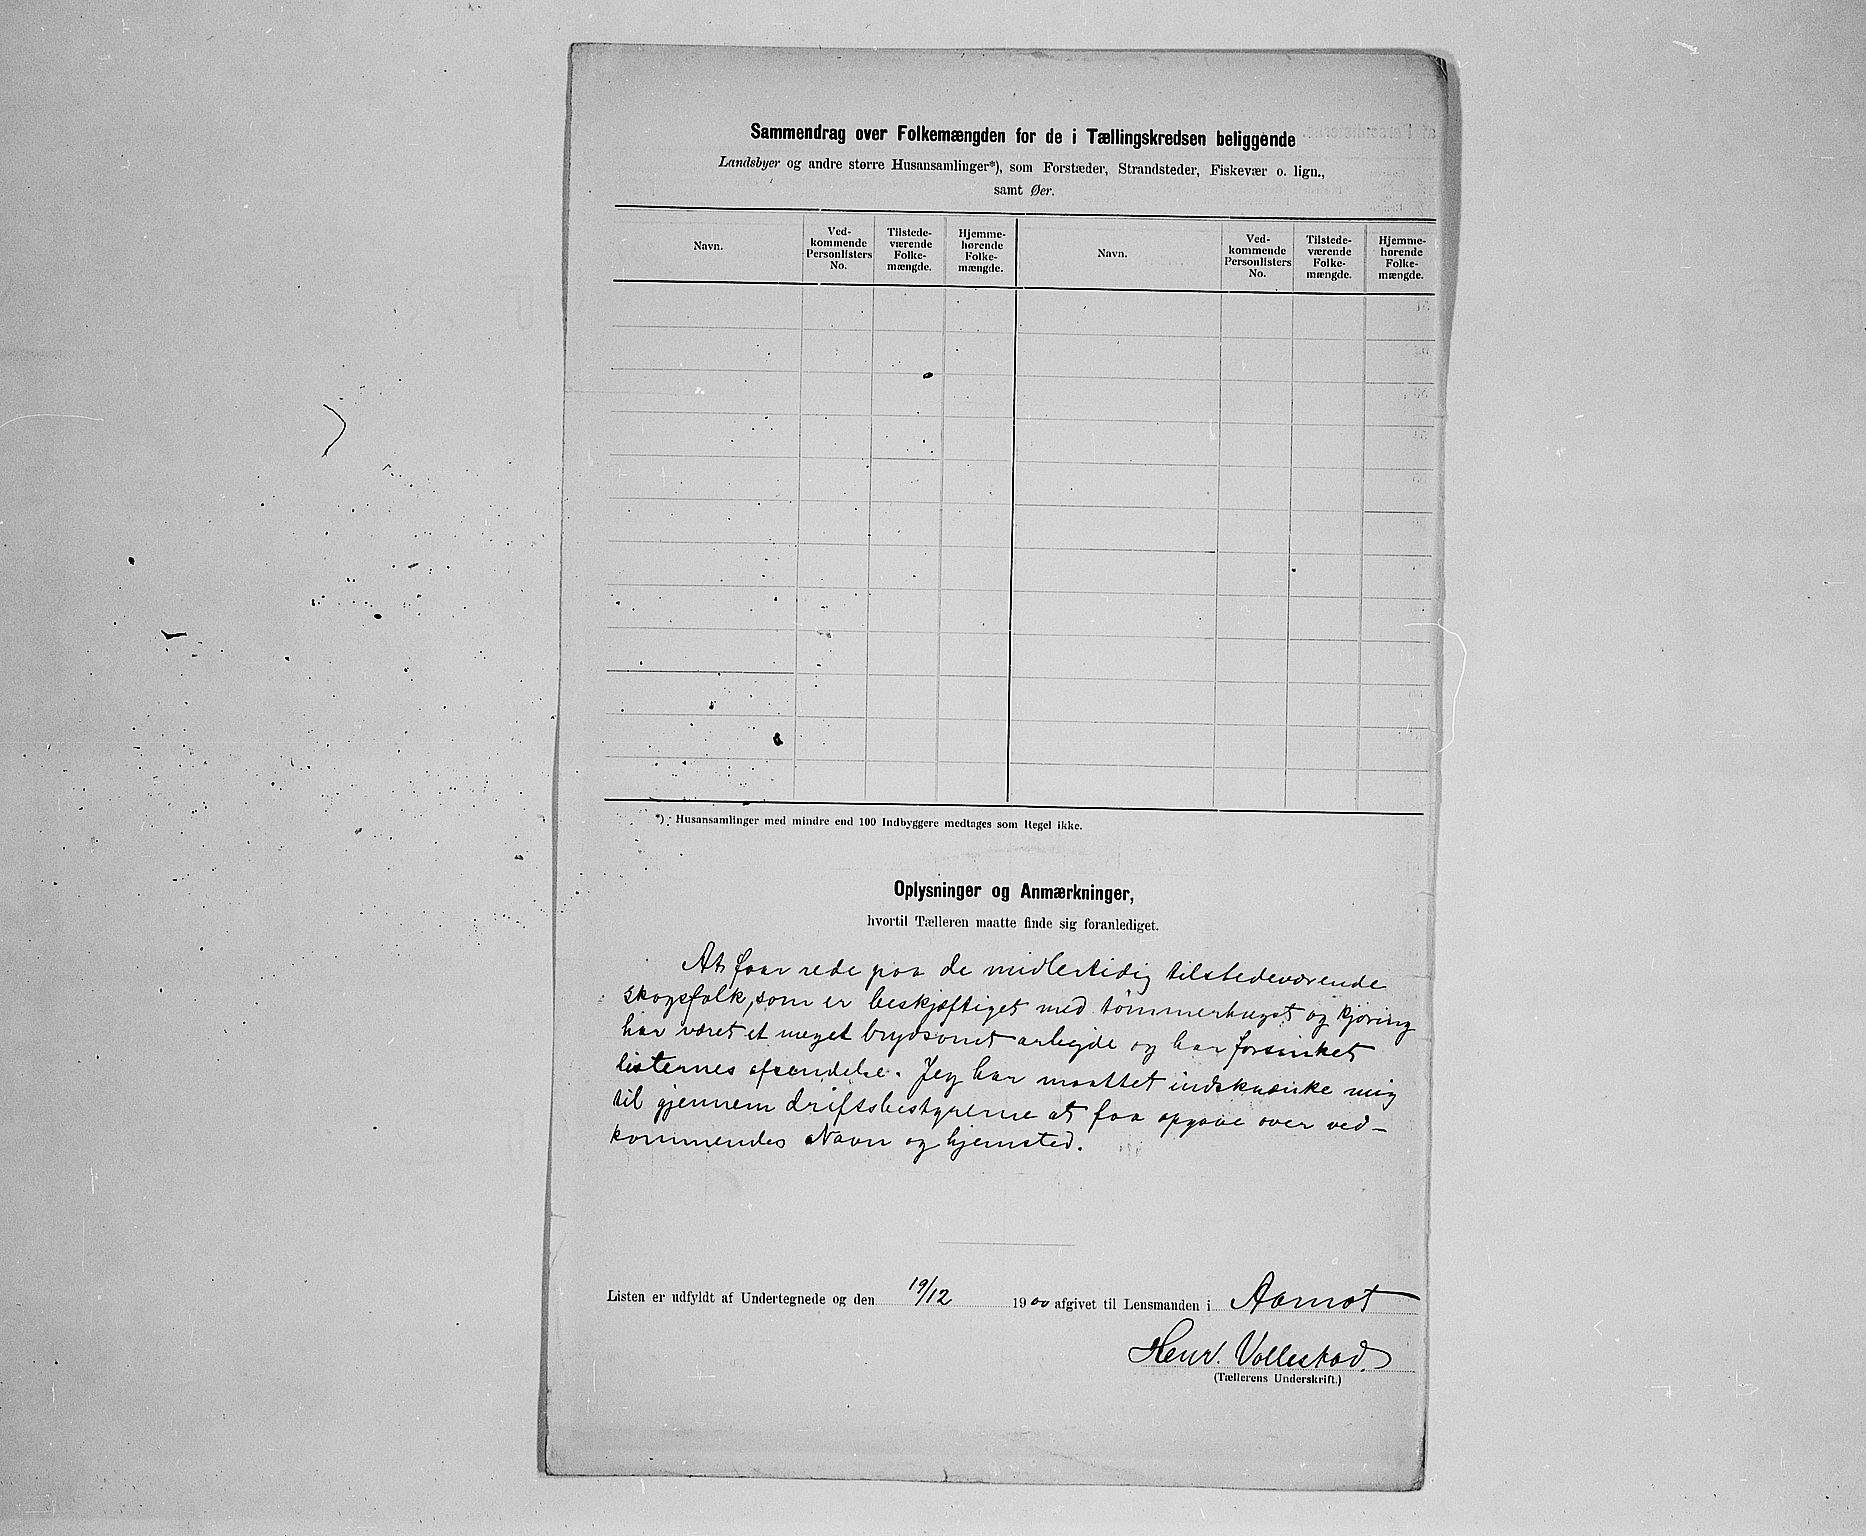 Sammendrag over Folkemængden for de i Tællingskredsen beliggende
Landsbyer og andre større Husansamlinger*), som Forstæder, Strandsteder, Fiskevær o. lign.,
samt Øer.
Navn. Ved-kommende Personlisters No. Tilstede-værende Folke-mængde. Hjemme-hørende Folke-mængde. Navn. Ved-kommende Personlisters No. Tilstede-værende Folke-mængde. Hjemme-hørende Folke-mængde.
*) Husansamlinger med mindre end 100 Indbyggere medtages som Regel ikke.
Oplysninger og Anmærkninger,
hvortil Tælleren maatte finde sig foranlediget.
At faar rede paa de midlertidig tilstedeværende
skogsfolk, som er beskjæftiget med tømmerhugst og kjøring
har været et meget brydsomt arbeyde og har forsinket
listernes afsendelse. Jeg har maattet indskrænke mig
til gjennem driftsbestyrerne at faa opgave over ved-
kommendes Navn og hjemsted.
Listen er udfyldt af Undertegnede og den 19/12 1900 afgivet til Lensmanden i Aamot
Henr. Vollestad.
(Tællerens Underskrift.)